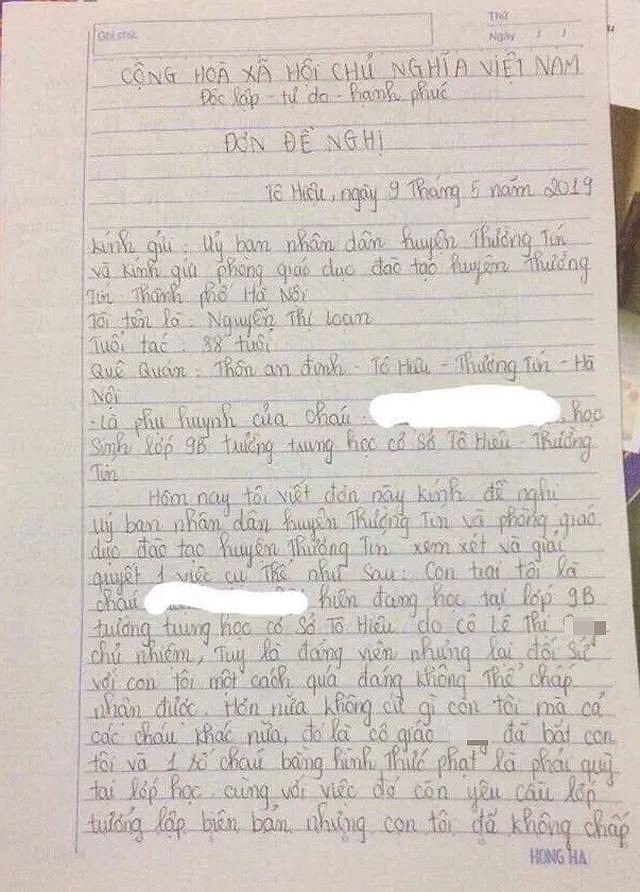 Ghi chú:
Thứ
Ngày / /
CỘNG HOÀ XÃ HỘI CHỦ NGHĨA VIỆT NAM
Độc lập - tự do - hạnh phúc
ĐƠN ĐỀ NGHỊ
Tô Hiệu, ngày 9 Tháng 5 năm 2019
Kính gửi : Uỷ ban nhân dân huyện Thường Tín
và kính gửi phòng giáo dục đào tạo huyện Thường
Tín Thành phố Hà Nội
Tôi tên là : Nguyễn Thị Loan
Tuổi tác : 38 tuổi
Quê Quán : Thôn an định - Tô Hiệu - Thường Tín - Hà
Nội
- Là phụ huynh của cháu : , học
Sinh lớp 9B tường trung học cơ Sở Tô Hiệu - Thường
Tín
Hôm nay tôi viết đơn này kính đề nghị
uỷ ban nhân dân huyện Thường Tín và phòng giáo
dục đào tạo huyện Thường Tín xem xét và giải
quyết 1 việc cụ Thể như sau : Con trai tôi là
cháu hiện đang học tại lớp 9B
tường trung học cơ Sở Tô Hiệu do cô Lê Thị
chủ nhiệm, Tuy là đảng viên nhưng lại đối Sử
với con tôi một cách quá đáng không Thể chấp
nhận được. Hơn nữa không cứ gì con tôi mà cả
các cháu khác nữa, đó là cô giáo đã bắt con
tôi và 1 số cháu bằng hình Thức phạt là phải quỳ
tại lớp học, cùng với việc đó còn yêu cầu lớp
tưởng lập biên bản nhưng con tôi đã không chấp
HONG HA